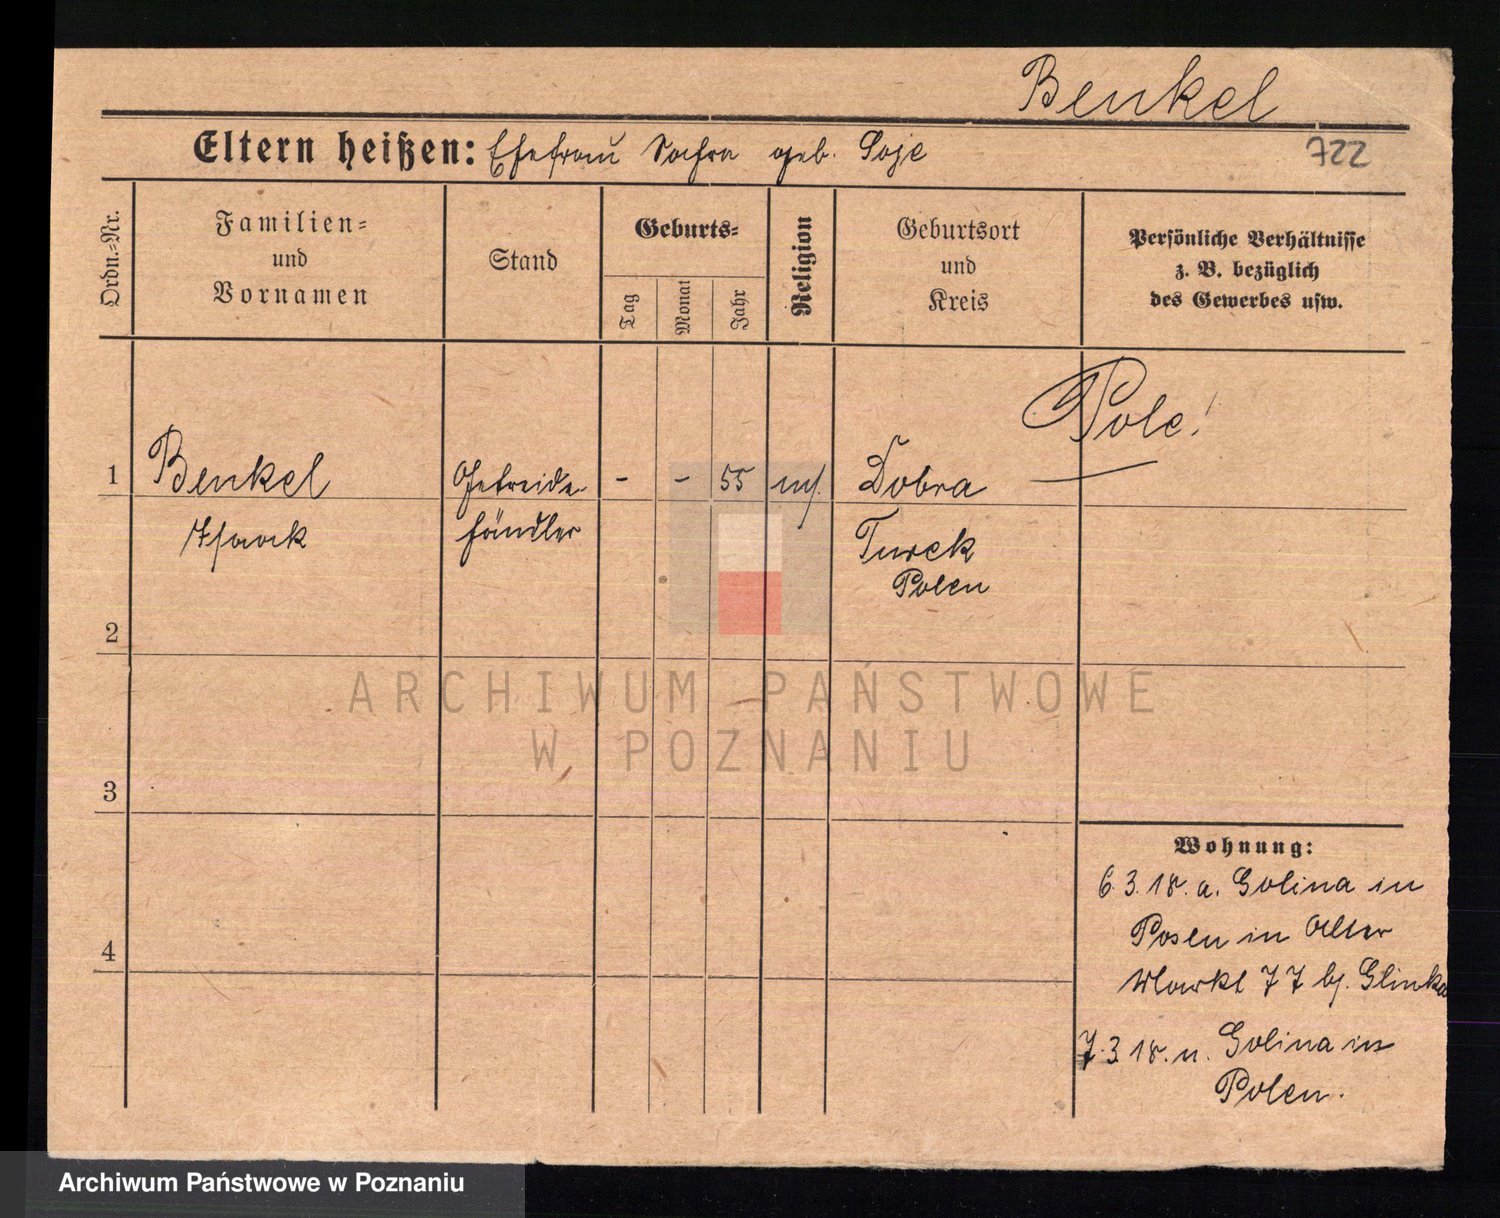 Benkel
Eltern heißen: Ehefrau geb.
722
Ordn.=Nr.
Familien=
und
Vornamen
Stand
Geburts=
Tag
Monat
Jahr
Religion
Geburtsort
und
Kreis
Persönliche Verhältnisse
z. B. bezüglich
des Gewerbes usw.
Pole!
1
Benkel
Getreide
-
-
55
Dobra
Isaack
händler
Turek
Polen
2
ARCHIWUM PAŃSTWOWE
W POZNANIU
3
Wohnung:
6.3.18. a. Golina in
Polen in Alter
Markt 77 bj. Glinka
4
7.3.18. n. Golina in
Polen.
Archiwum Państwowe w Poznaniu